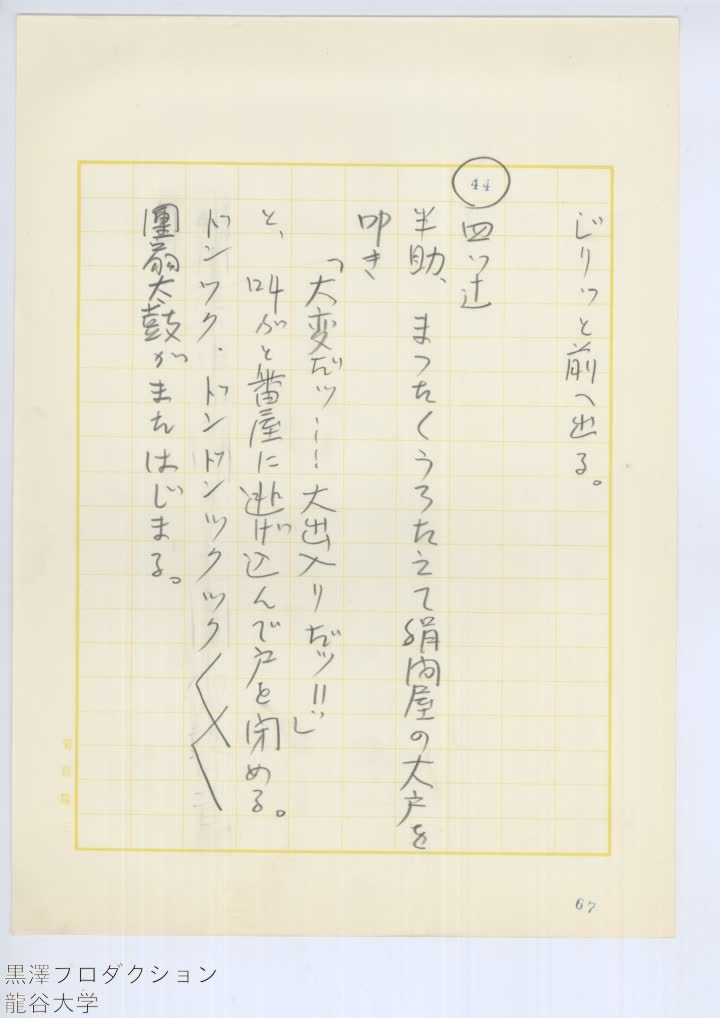 じりっと前へ出る。
44
四ツ辻
半助、まつたくうろたえて絹問屋の大戸を
叩き
「大変だッ…! 大出入りだッ!!」
と、叫ぶと番屋に逃げ込んで戸を閉める。
ドンツク・ドンドンツクツク〱〱
團扇太鼓がまたはじまる。
67
黒澤プロダクション
龍谷大学